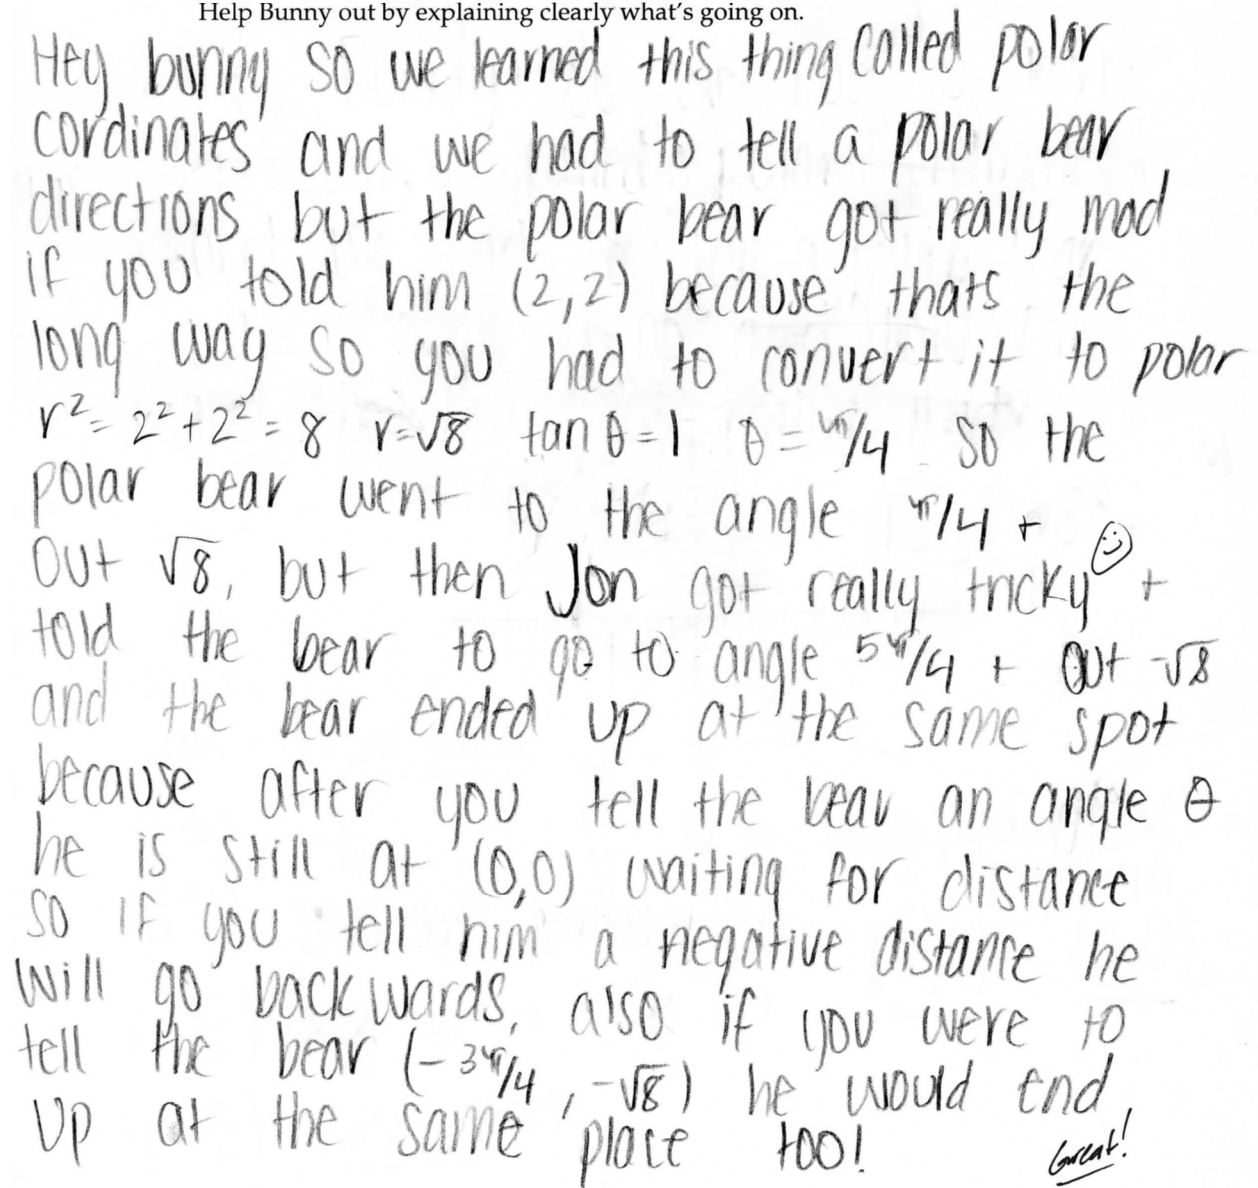 Help Bunny out by explaining clearly what's going on.
Hey bunny so we learned this thing called polar
cordinates and we had to tell a polar bear
directions but the polar bear got really mad
if you told him (2,2) because thats the
long way so you had to convert it to polar
r²= 2²+2² = 8 r=√8 tan θ=1 θ = π/4 so the
polar bear went to the angle π/4 +
out √8, but then Jon got really tricky ☺ +
told the bear to go to angle 5π/4 + out -√8
and the bear ended up at the same spot
because after you tell the bear an angle θ
he is still at (0,0) waiting for distance
so if you tell him a negative distance he
will go backwards, also if you were to
tell the bear (-3π/4, -√8) he would end
up at the same place too!
Great!